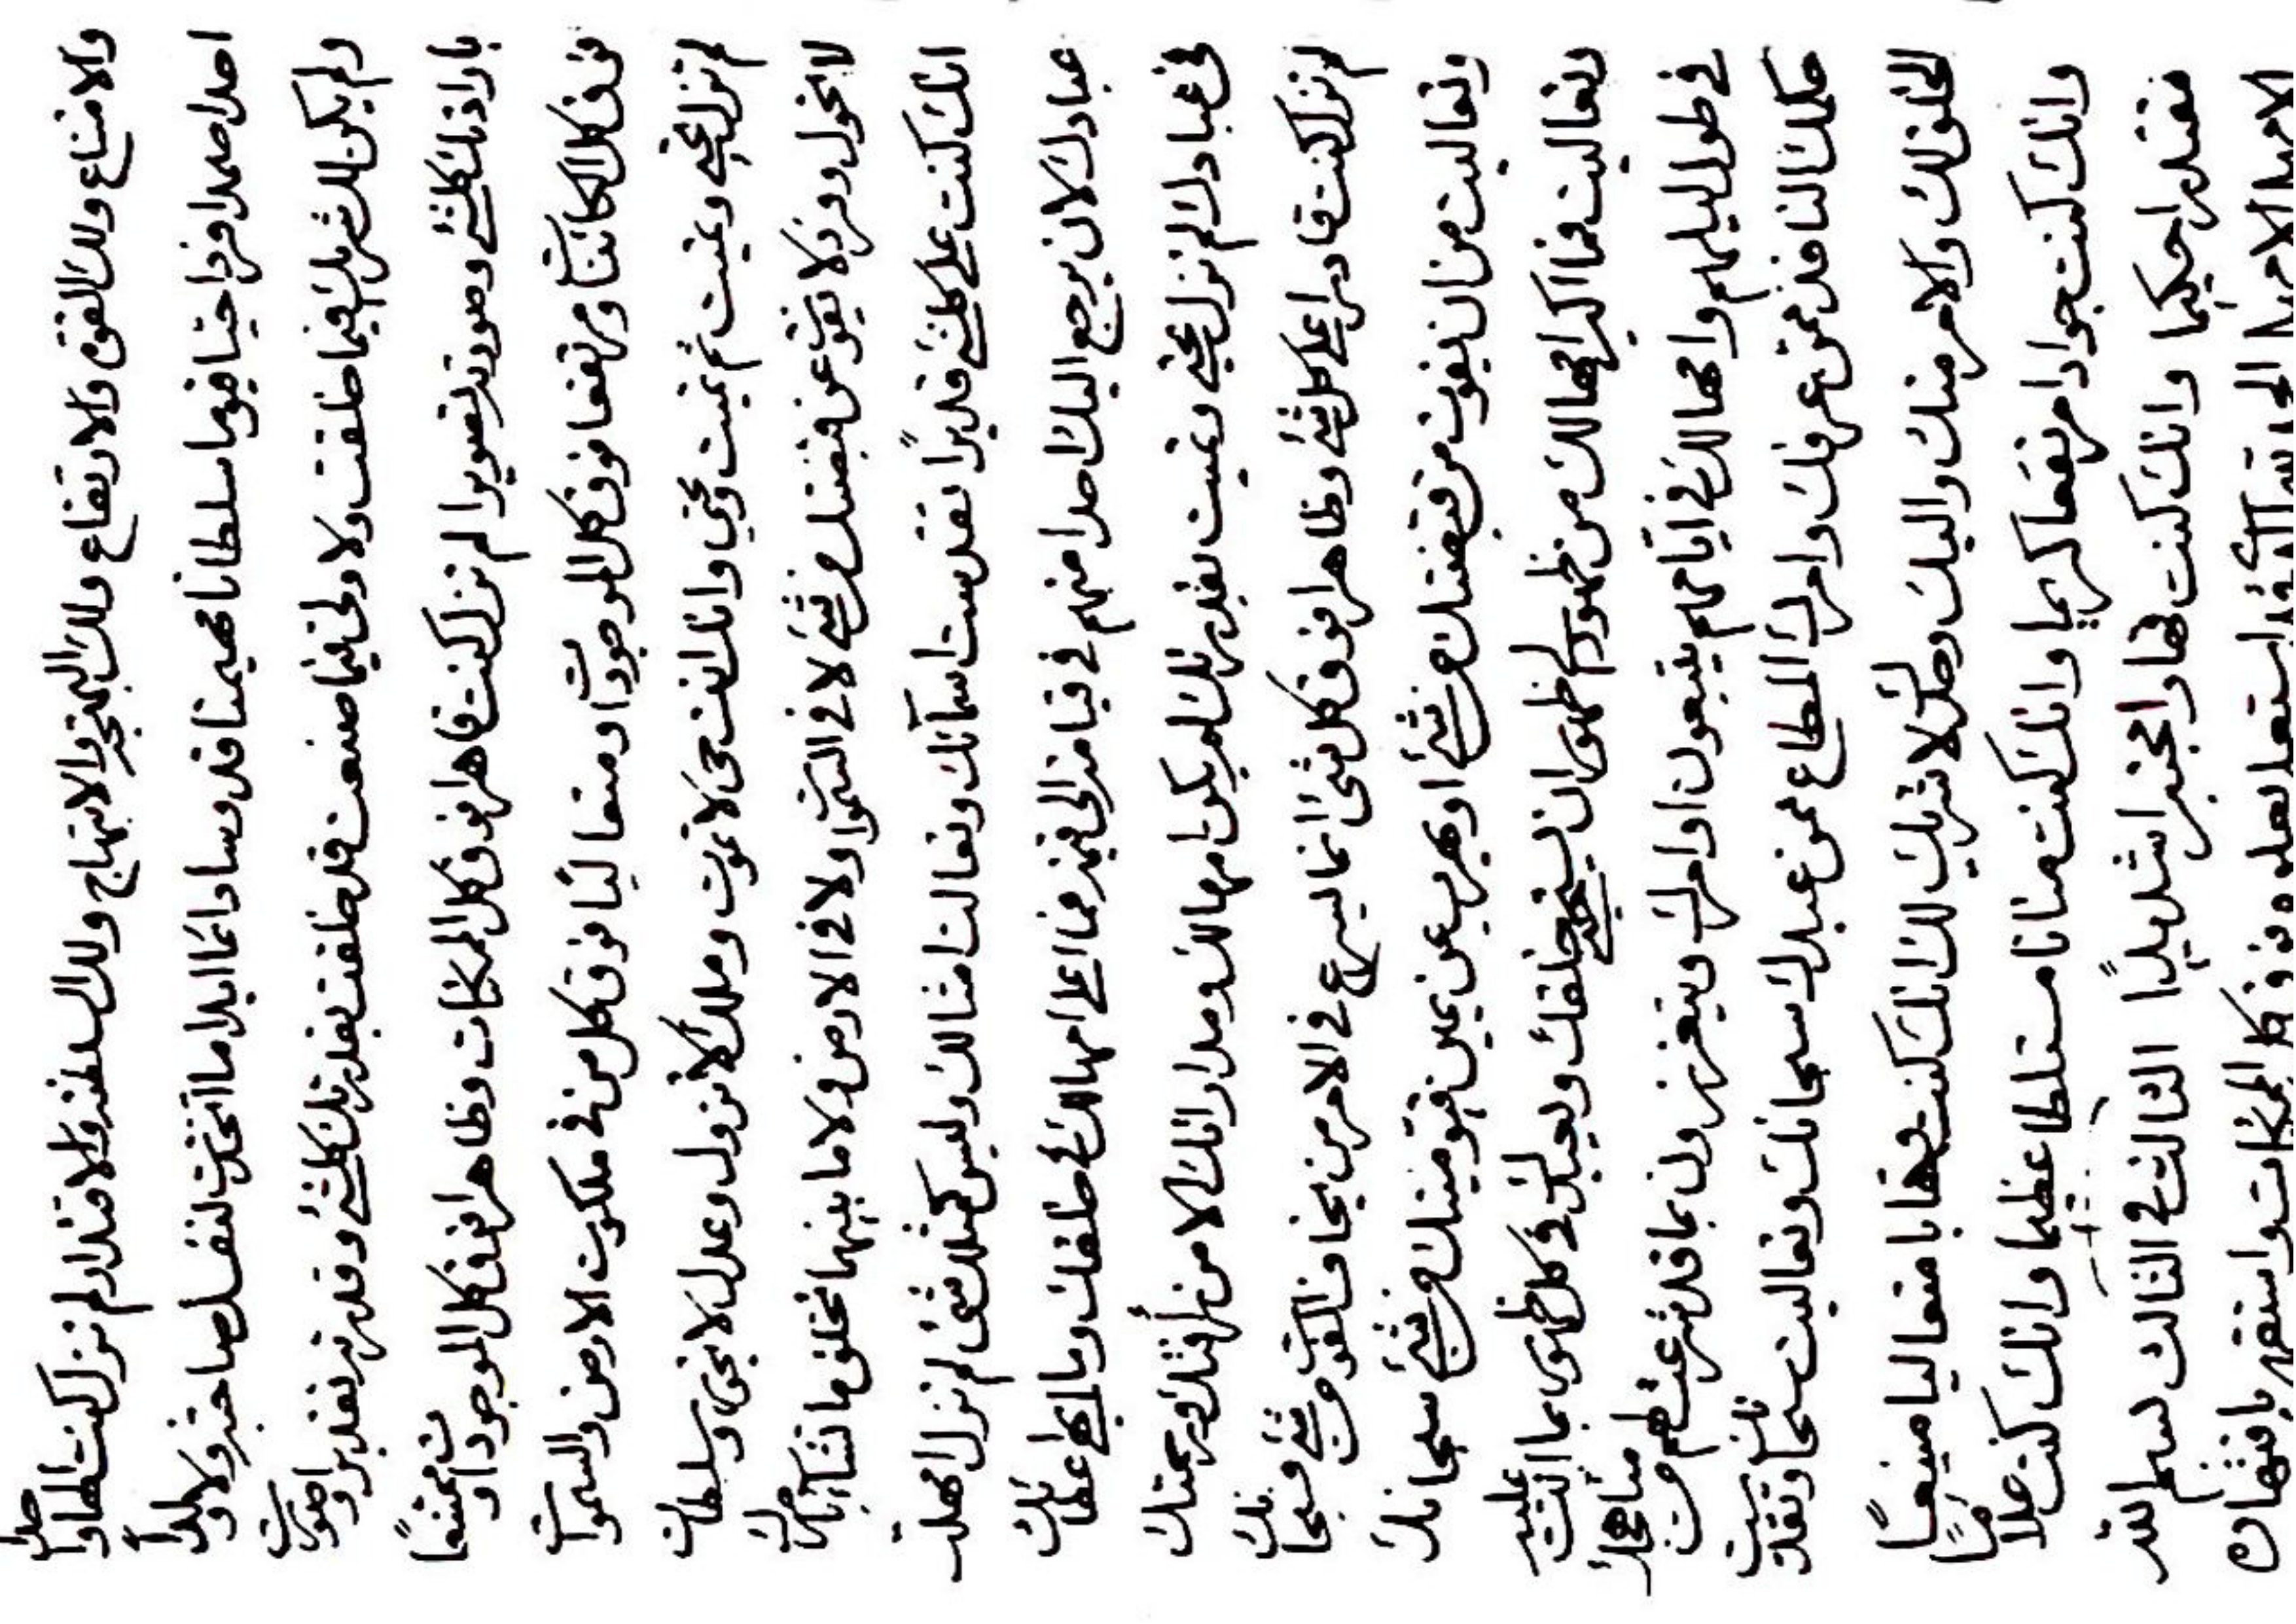 والامتناع ولك القوة والارتفاع ولك البهجة والابتهاج ولك السلطنة والاقتدار لم تزل كنت الها واحدا
احدا صمدا فردا حيا قيوما سلطانا مهيمنا قدوسا دائما ابدا ما اتخذت لنفسك صاحبة ولا ولدا
ولم يكن لك شريك فيما خلقت ولا ولي فيما صنعت قد خلقت بقدرتك كلشئ وقدرته تقديرا وصورت
بارادتك كلشئ وصورته تصويرا لم تزل كنت قاهرا فوق كل الممكنات وظاهرا فوق كل الموجودات وممتنعا
فوق كل الكائنات ومرتفعا فوق كل الموجودات ومتعاليا فوق كل من في ملكوت الارض والسموات
لم تزل تحيي وتميت ثم تميت وتحيي وانك انت حي لا تموت وملك لا تزول وعدل لا تجور وسلطان
لا تحول وفرد لا يفوت عن قبضتك من شئ لا في السموات ولا في الارض ولا ما بينهما تخلق ما تشاء بامرك
انك كنت على كلشئ قديرا تقدست اسمائك وتعالت امثالك وليس كمثلك شئ لم تزل امهلت
عبادك لان يرجع اليك احدا منهم في قيامة اخرى فما اعلى امهالك في خلقك وما ابهى اعطائك
في عبادك لم تزل تحيي وتميت بقدرتك لم يكن امهالك ومداراتك الا من رأفتك ورحمتك
لم تزل كنت قادرا على كل شئ وظاهرا فوق كل شئ انما يسرع في الامر من يخاف الفوت من شئ فسبحانك
وتعاليت من ان يفوت من قبضتك من شئ او يهرب عن يمين قيوميتك من شئ سبحانك
وتعاليت فما اكبر امهالك من ظهور لظهور ان خلقك ويعبدك في كل ظهور بما انت عليه
في طول ليلهم وامهالك في ايامهم يتبعون اوامرك ويتعززون بما قد شرعت لهم من مناهجك
حكمك النافذ ممن عرفك وامرك المطاع ممن عبدك سبحانك وتعاليت سبحانك وتقدست
الخلق لك والامر منك واليك وحدك لا شريك لك انك كنت وهابا متعاليا منيعا
وانك كنت جوادا مرتفعا كريما وانك كنت منانا متسلطا عظيما وانك كنت علاما
مقتدرا حكيما وانك كنت قهارا مجتبرا شديدا الثالث في الثالث بسم الله
الاحيد الاحيد الحمد لله الذي قد استعلى بعلوه فوق كل الممكنات واستقهر باقتهاره